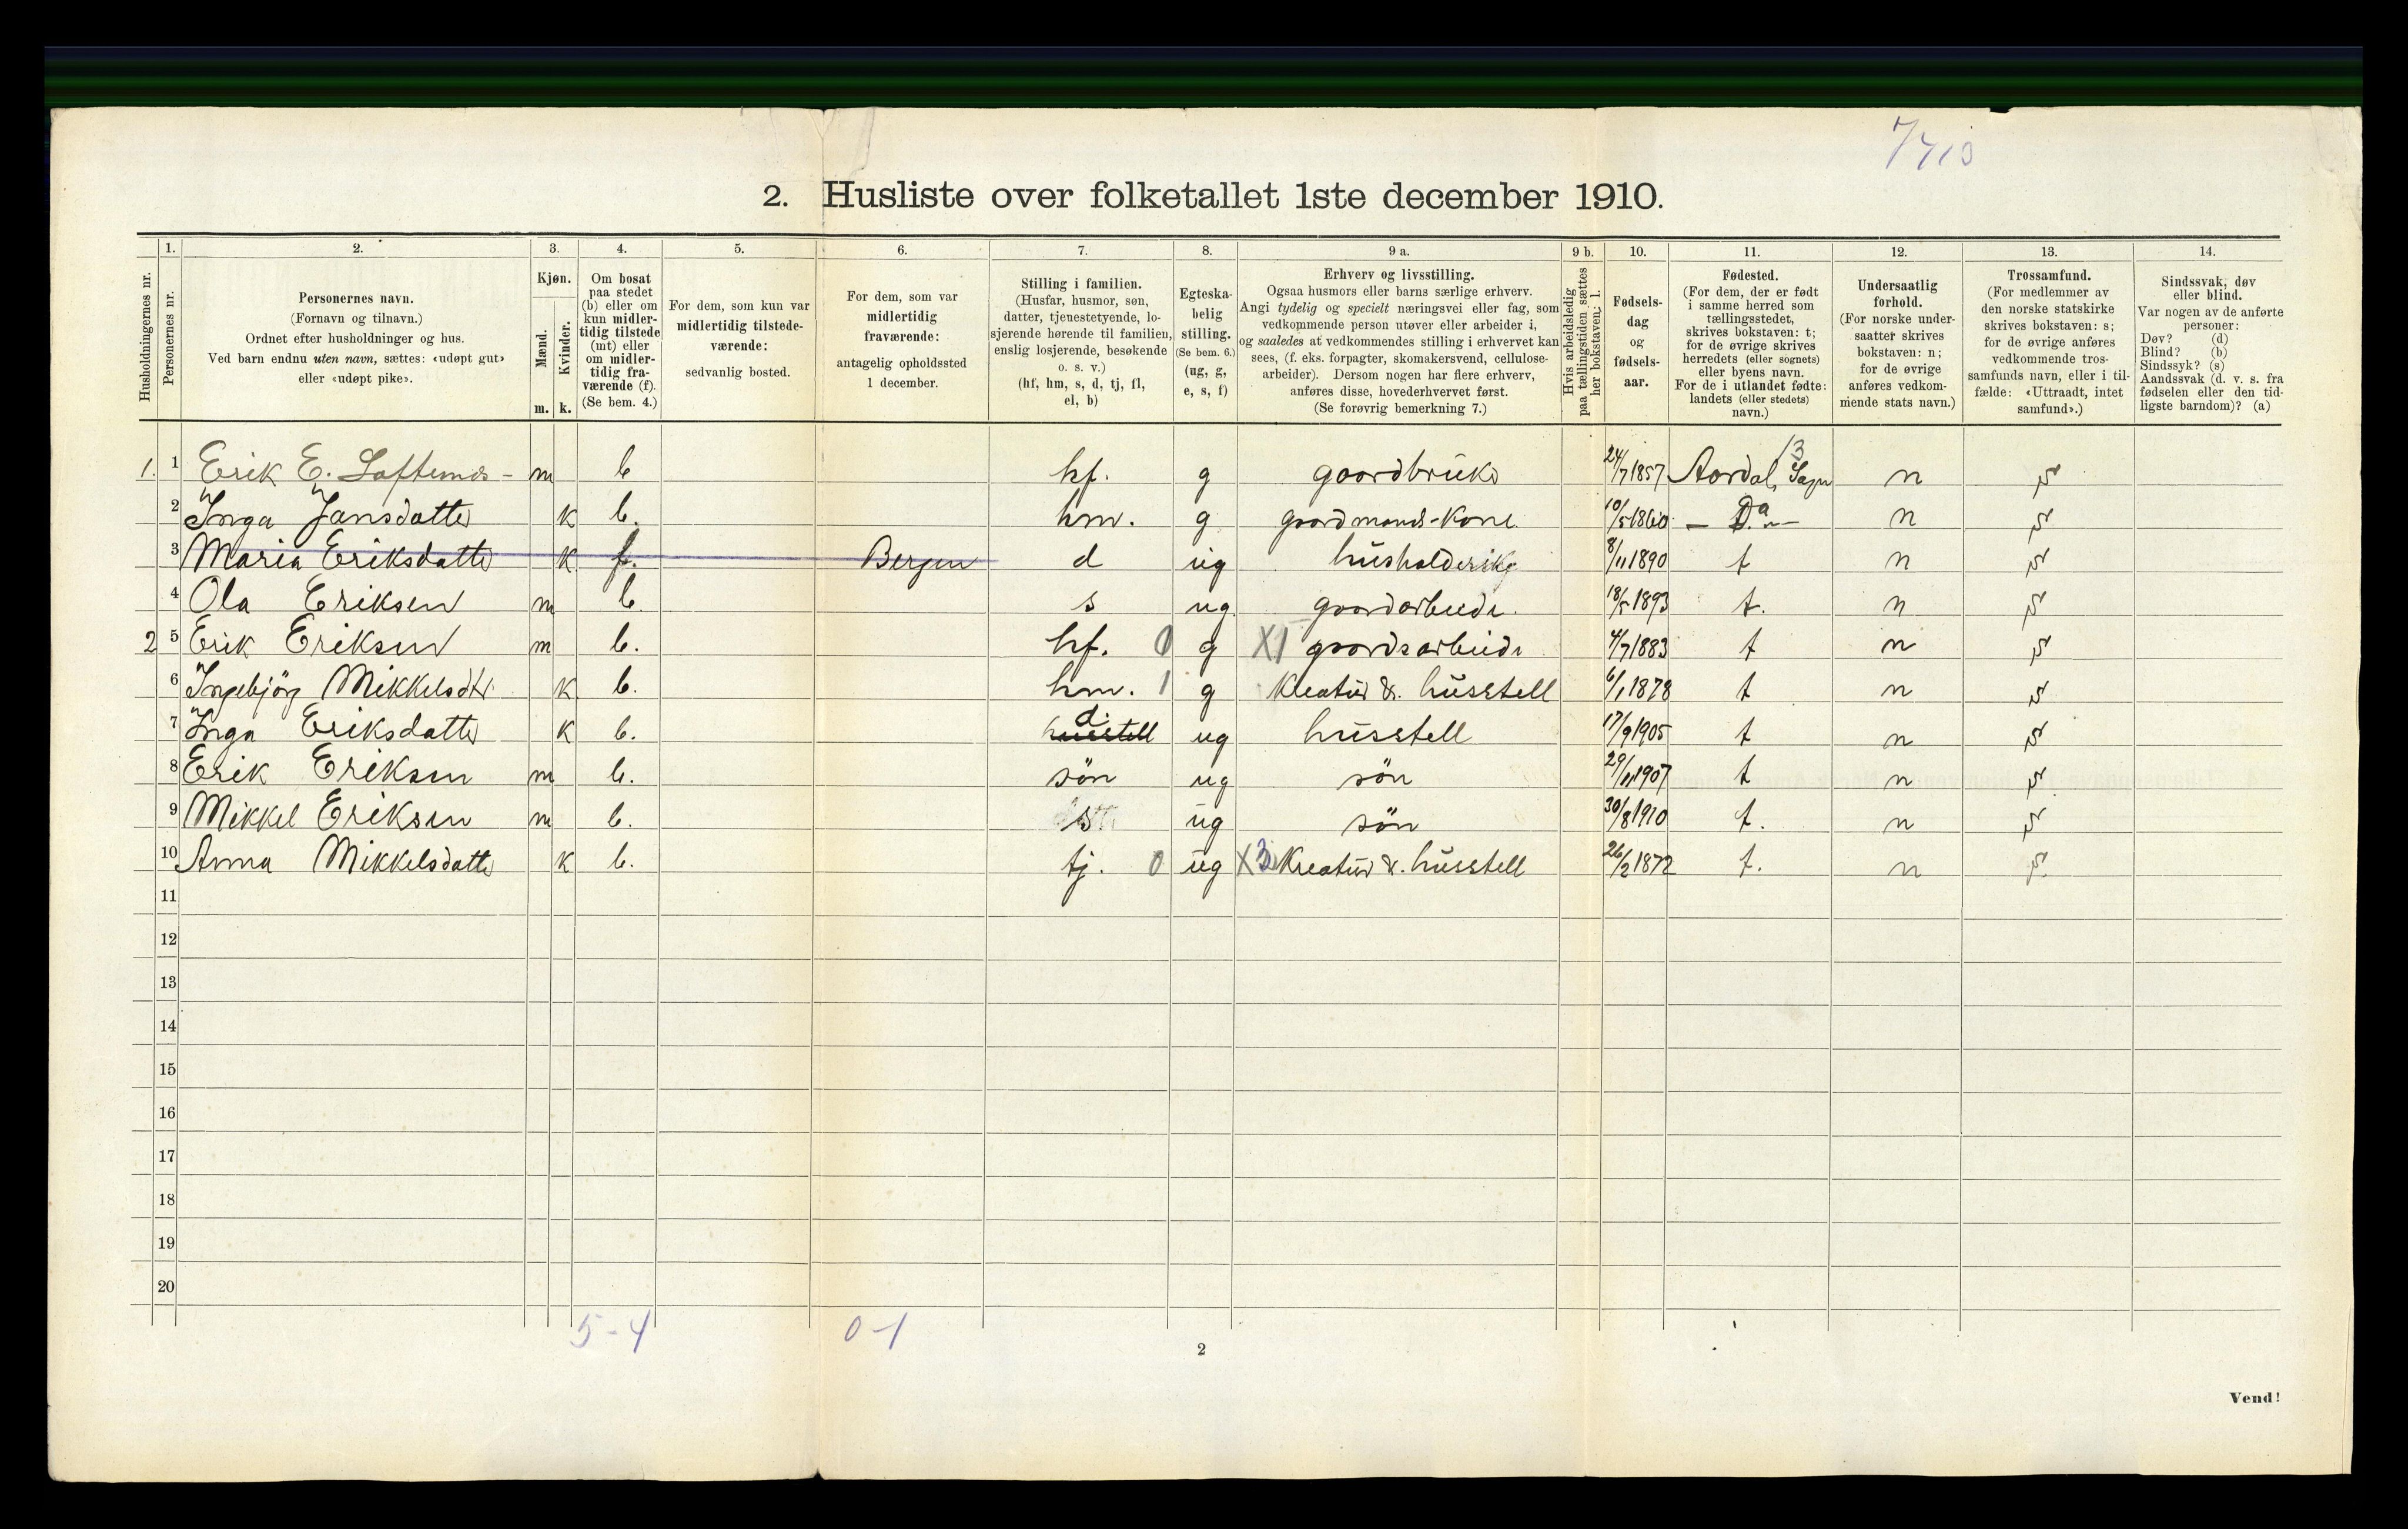 2. Husliste over folketallet 1ste december 1910.
Husholdningernes nr.
1.
Personernes nr.
2.
Personernes navn.
(Fornavn og tilnavn.)
Ordnet efter husholdninger og hus.
Ved barn endnu uten navn, sættes: «udøpt gut»
eller «udøpt pike».
3.
Kjøn.
Mænd.
Kvinder.
m. k.
4.
Om bosat
paa stedet
(b) eller om
kun midler-
tidig tilstede
(mt) eller
om midler-
tidig fra-
værende (f).
(Se bem. 4.)
5.
For dem, som kun var
midlertidig tilstede-
værende:
sedvanlig bosted.
6.
For dem, som var
midlertidig
fraværende:
antagelig opholdssted
1 december.
7.
Stilling i familien.
(Husfar, husmor, søn,
datter, tjenestetyende, lo-
sjerende hørende til familien,
enslig losjerende, besøkende
o. s. v.)
(hf, hm, s, d, tj, fl,
el, b)
8.
Egteska-
belig
stilling.
(Se bem. 6.)
(ug, g,
e, s, f)
9 a.
Erhverv og livsstilling.
Ogsaa husmors eller barns særlige erhverv.
Angi tydelig og specielt næringsvei eller fag, som
vedkommende person utøver eller arbeider i,
og saaledes at vedkommendes stilling i erhvervet kan
sees, (f. eks. forpagter, skomakersvend, cellulose-
arbeider). Dersom nogen har flere erhverv,
anføres disse, hovederhvervet først.
(Se forøvrig bemerkning 7.)
9 b.
Hvis arbeidsledig
paa tællingstiden sættes
her bokstaven: l.
10.
Fødsels-
dag
og
fødsels-
aar.
11.
Fødested.
(For dem, der er født
i samme herred som
tællingsstedet,
skrives bokstaven: t;
for de øvrige skrives
herredets (eller sognets)
eller byens navn.
For de i utlandet fødte:
landets (eller stedets)
navn.)
12.
Undersaatlig
forhold.
(For norske under-
saatter skrives
bokstaven: n;
for de øvrige
anføres vedkom-
mende stats navn.)
13.
Trossamfund.
(For medlemmer av
den norske statskirke
skrives bokstaven: s;
for de øvrige anføres
vedkommende tros-
samfunds navn, eller i til-
fælde: «Uttraadt, intet
samfund».)
14.
Sindssvak, døv
eller blind.
Var nogen av de anførte
personer:
Døv? (d)
Blind? (b)
Sindssyk? (s)
Aandssvak (d. v. s. fra
fødselen eller den tid-
ligste barndom)? (a)
1. 1 Erik E. m b hf. g 24/7 1857 Aardal, Sogn 13 n s
2 Inga Jansdatter k b. hm. g gaardmands-kone 10/5 1860 — Do — n s
3 Maria Eriksdatter k f. Bergen d ug 8/11 1890 t n s
4 Ola Eriksen m b. s ug. gaardarbeide. 18/5 1893 t. n s
2 5 Erik Eriksen m b. hf. 0 g X1 gaardsarbeide 4/7 1883 t n s
6 Ingebjörg Mikkelsdtr. k b. hm. 1 g Kreatur & husstell 6/1 1878 t n s
7 Inga Eriksdatter k b. husstell d. ug husstell 17/9 1905 t n s
8 Erik Eriksen m b. sön ug sön 29/11 1907 t n s
9 Mikkel Eriksen m b. s. ug sön 30/8 1910 t. n s
10 Anna Mikkelsdatter k b. tj. 0 ug X3 Kreatur & husstell 26/2 1872 t. n s
11
12
13
14
15
16
17
18
19
20
5-4 0-1
2
Vend!